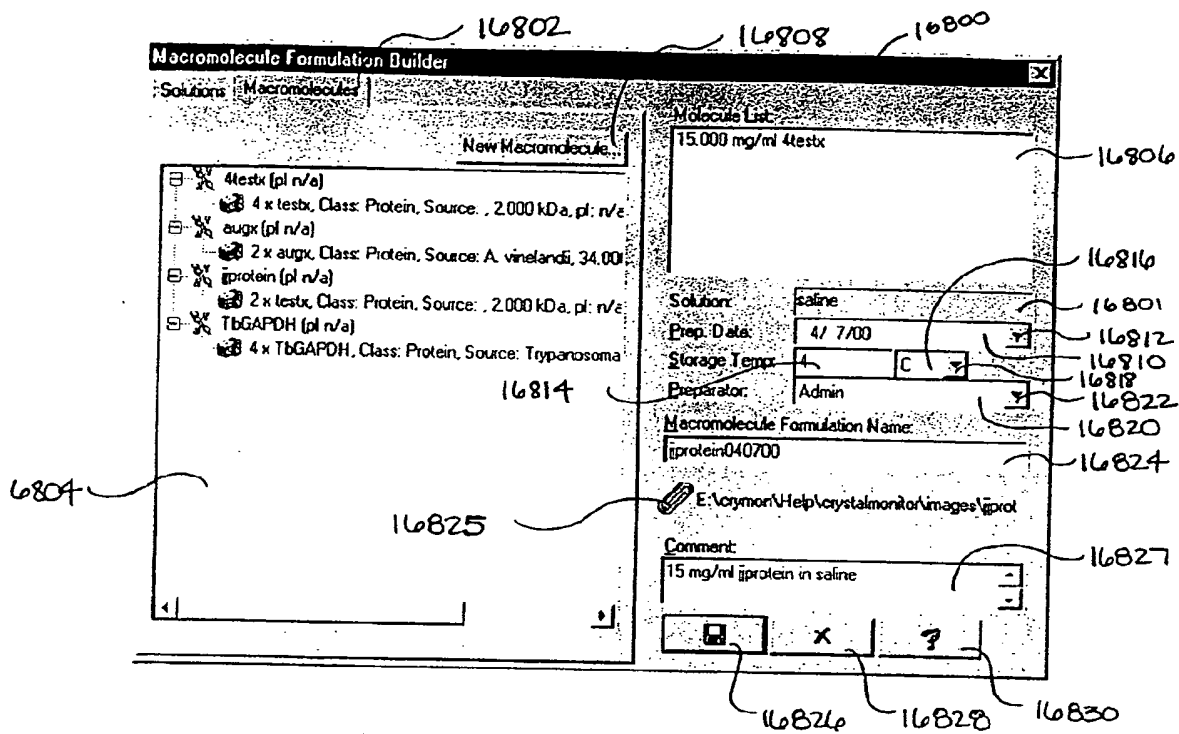 16802
16808
16800
Macromolecule Formulation Builder
Solutions Macromolecules
New Macromolecule...
4testx (pI n/a)
4 x testx, Class: Protein, Source: , 2.000 kDa, pI: n/a
augx (pI n/a)
2 x augx, Class: Protein, Source: A. vinelandii, 34.00
jjprotein (pI n/a)
2 x testx, Class: Protein, Source: , 2.000 kDa, pI: n/a
TbGAPDH (pI n/a)
4 x TbGAPDH, Class: Protein, Source: Trypanosoma
6804
Molecule List:
15.000 mg/ml 4testx
16806
16816
Solution: saline
16801
Prep. Date: 4/ 7/00
16812
16810
Storage Temp: 4 C
16818
16814
Preparator: Admin
16822
16820
Macromolecule Formulation Name:
jjprotein040700
16824
E:\crymon\Help\crystalmonitor\images\jjprot
16825
Comment:
15 mg/ml jjprotein in saline
16827
16826
16828
16830